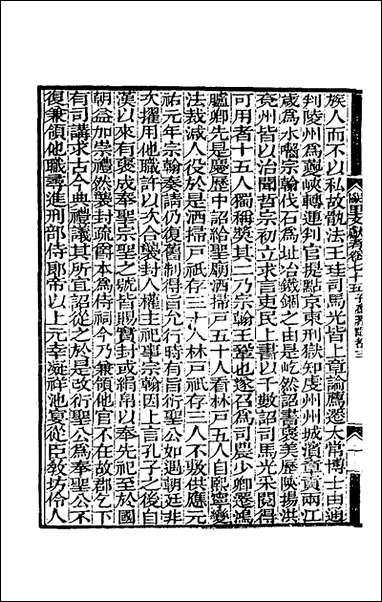 族人而不以私故骫法王珪司馬光皆上章論薦遷太常博士由通
判陵州爲夔峽轉運判官提點京東刑獄知虔州州城濱章貢兩江
歲爲水囓宗翰伐石爲址冶鐵錮之由是屹然詔書褒美歷陝揚洪
兗州皆以治聞哲宗初立求言吏民上書以千數詔司馬光采閱得
可用者十五人獨稱獎其二乃宗翰王鞏也遂召爲司農少卿遷鴻
臚卿先是慶歷中詔給聖廟洒掃戸五十人看林戸五人自熙寧變
法裁減人役於是洒掃戸祇存三十人林戸祇存三人不敷供應元
祐元年宗翰奏請仍復舊制得旨允行時有旨衍聖公如遇朝廷非
次擢用他職許以次合襲封人權主祀事宗翰因上言孔子之後自
漢以來有褒成奉聖宗聖之號皆賜實封或絹帛以奉先祀至於國
朝益加崇禮然襲封疏爵本爲侍祠今乃兼領他官不在故郡乞下
有司講求古今典禮議其所宜詔從之於是改衍聖公爲奉聖公不
復兼領他職尋進刑部侍郎帝以上元幸凝祥池宴從臣敎坊伶人